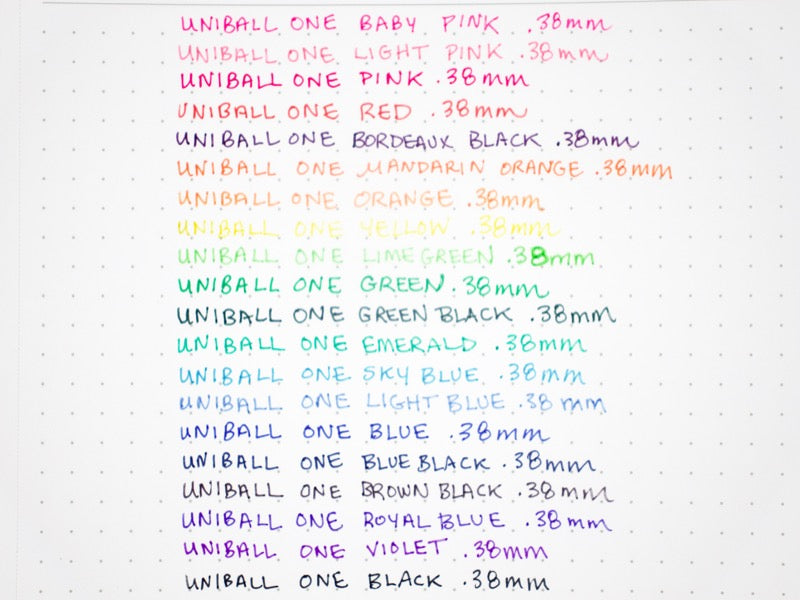 UNIBALL ONE BABY PINK .38mm
UNIBALL ONE LIGHT PINK .38mm
UNIBALL ONE PINK .38mm
UNIBALL ONE RED .38mm
UNIBALL ONE BORDEAUX BLACK .38mm
UNIBALL ONE MANDARIN ORANGE .38mm
UNIBALL ONE ORANGE .38mm
UNIBALL ONE YELLOW .38mm
UNIBALL ONE LIME GREEN .38mm
UNIBALL ONE GREEN .38mm
UNIBALL ONE GREEN BLACK .38mm
UNIBALL ONE EMERALD .38mm
UNIBALL ONE SKY BLUE .38mm
UNIBALL ONE LIGHT BLUE .38mm
UNIBALL ONE BLUE .38mm
UNIBALL ONE BLUE BLACK .38mm
UNIBALL ONE BROWN BLACK .38mm
UNIBALL ONE ROYAL BLUE .38mm
UNIBALL ONE VIOLET .38mm
UNIBALL ONE BLACK .38mm